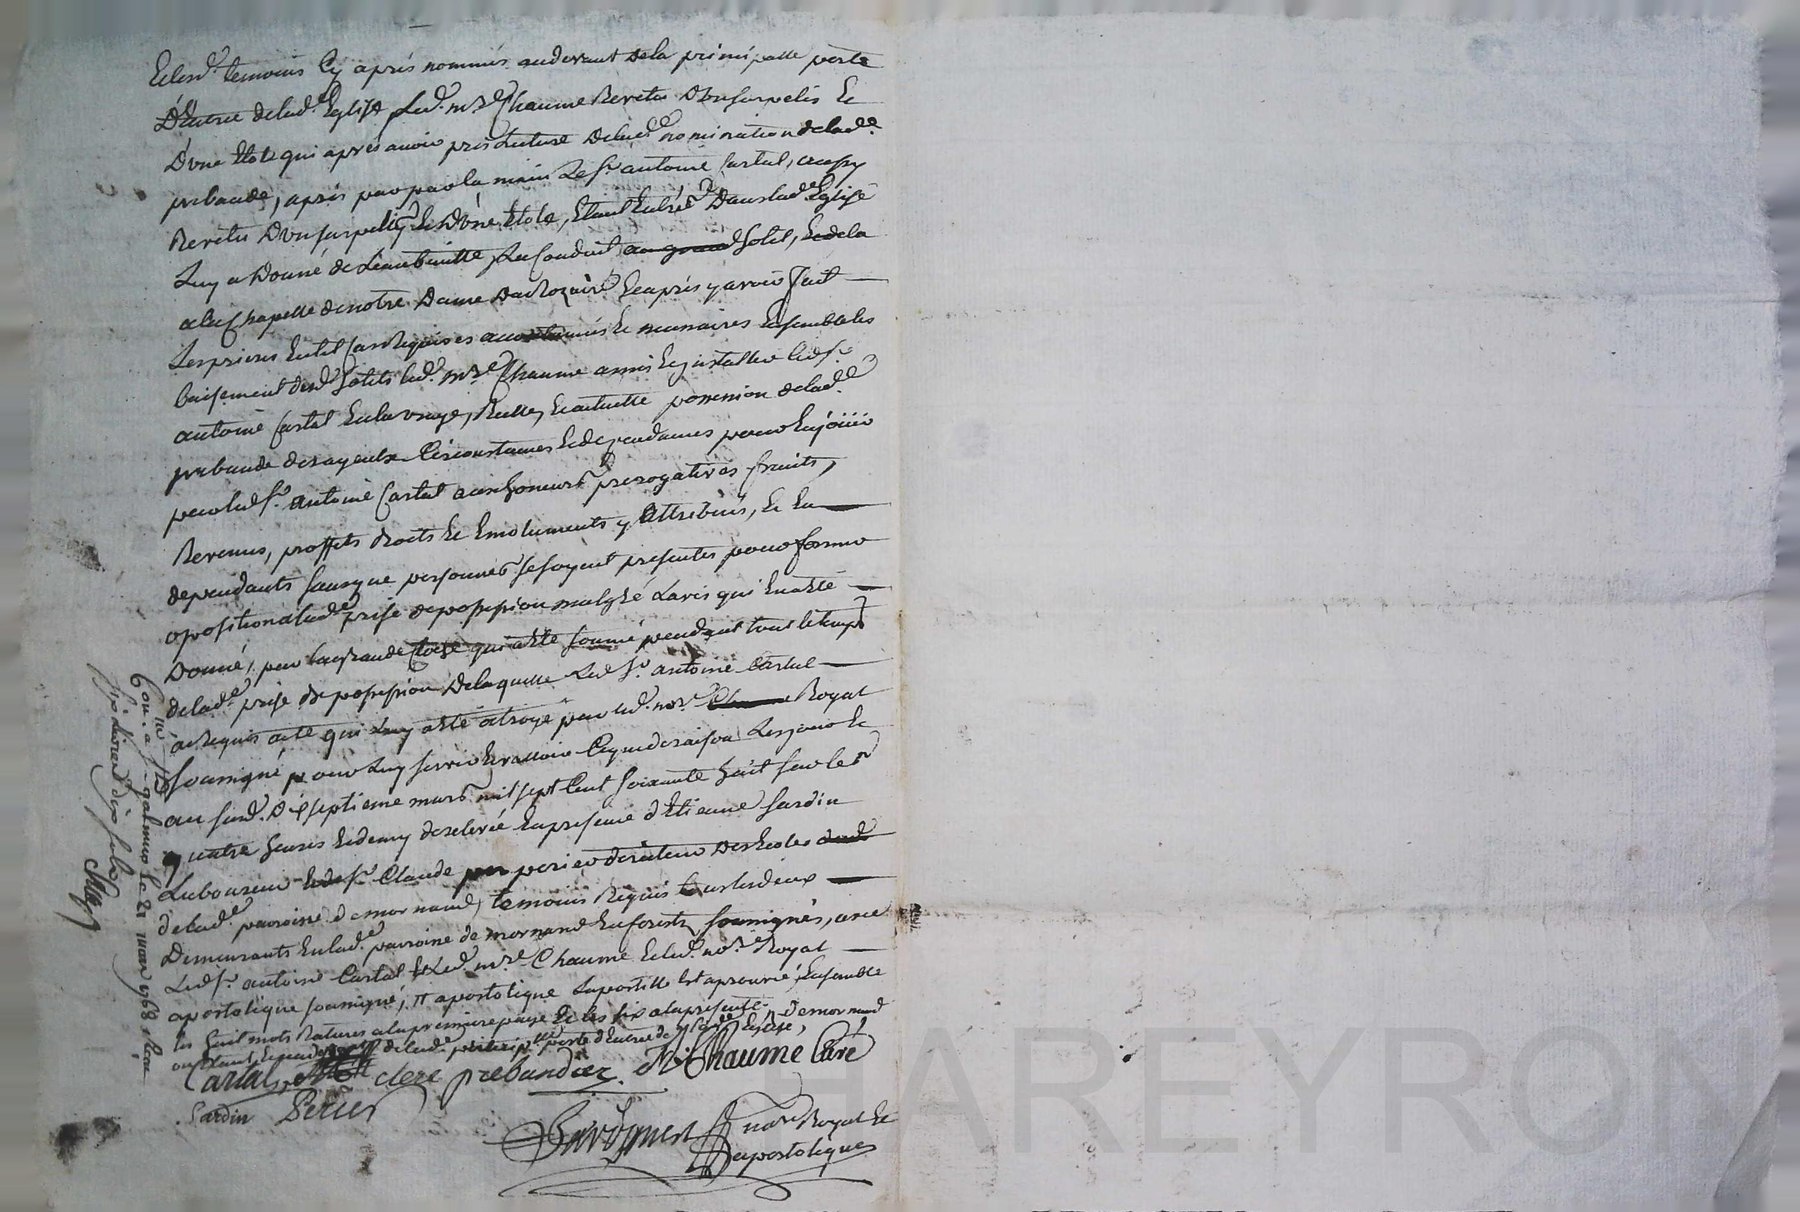 et lesd. temoins cy aprés nommés audevant dela principalle porte
D'Entrée delad.e Eglise led. m.re Chaume Revetu d'un surpelis et
D'une Etole qui aprés avoir pris lecture delad.e nomination delad.e
prebande, aprés par la main le s.r antoine Cartal, aussy
Revetu d'un surpellis et d'une Etole, Etant Entrés Dans lad.e Eglise
Luy a Donné de L'eau benitte, Le Conduit au grand hotel, et dela
ala Chapelle de notre Dame du Rozaire et aprés y avoir fait
Les prieres en tel cas Requises accoutumées et necessaires Ensemble le
baisement desd. hotels led. m.re Chaume a mis et installé led. s.r
antoine Cartal En la vraye, Reelle, et actuelle possession delad.e
prebande des ayeuls Circonstances et dependances pour En jouir
par led. s.r antoine Cartal aux honeurs prerogatives fruits,
Revenus, proffits droits et Emoluments y Attribués, et En
dependants sans que personnes se soyent presentés pour former
oposition alad.e prise de possession malgré L'avis qui En a été
Donné, par la grande cloche qui a été sonné pendant tout le temps
delad.e prise de possession Delaquelle Led. s.r antoine Cartal
a Requis acte qui Luy a été otroyé par led. no.re Royal
soussigné pour Luy servir Et valloir Ce que de raison Les jour et
an susd. Dixseptieme mars mil sept Cent soixante huit sur les
quatre heures et demy de relevée En presence d'Etienne Jardin
Laboureur et de s.r Claude perier directeur des Ecoles
delad.e parroisse de mornand, temoins Requis tous les deux
Demeurants En lad.e parroisse de mornand En forests soussignés, avec
Led. s.r antoine Cartal et Led. m.re Chaume et led. no.re Royal
apostolique soussigné, apostolique Lapostille Est aprouvé, Ensemble
les huit mots Raturés a la premiere page et les six a la presente
delad.e principalle porte d'Entrée de lad.e Eglise, de mornand
Cartal clerc prebandier. M. Chaume Curé
Jardin Perier
no.re Royal et
apostolique
Con. a S.t galmier le 21 mars 1768 Reçu